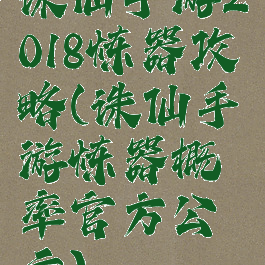 诛仙手游2
018炼器攻
略(诛仙手
游炼器概
率官方公
示)